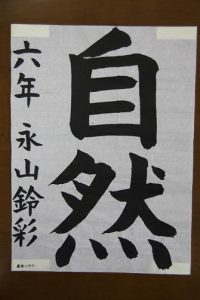 自然
六年 永山鈴彩